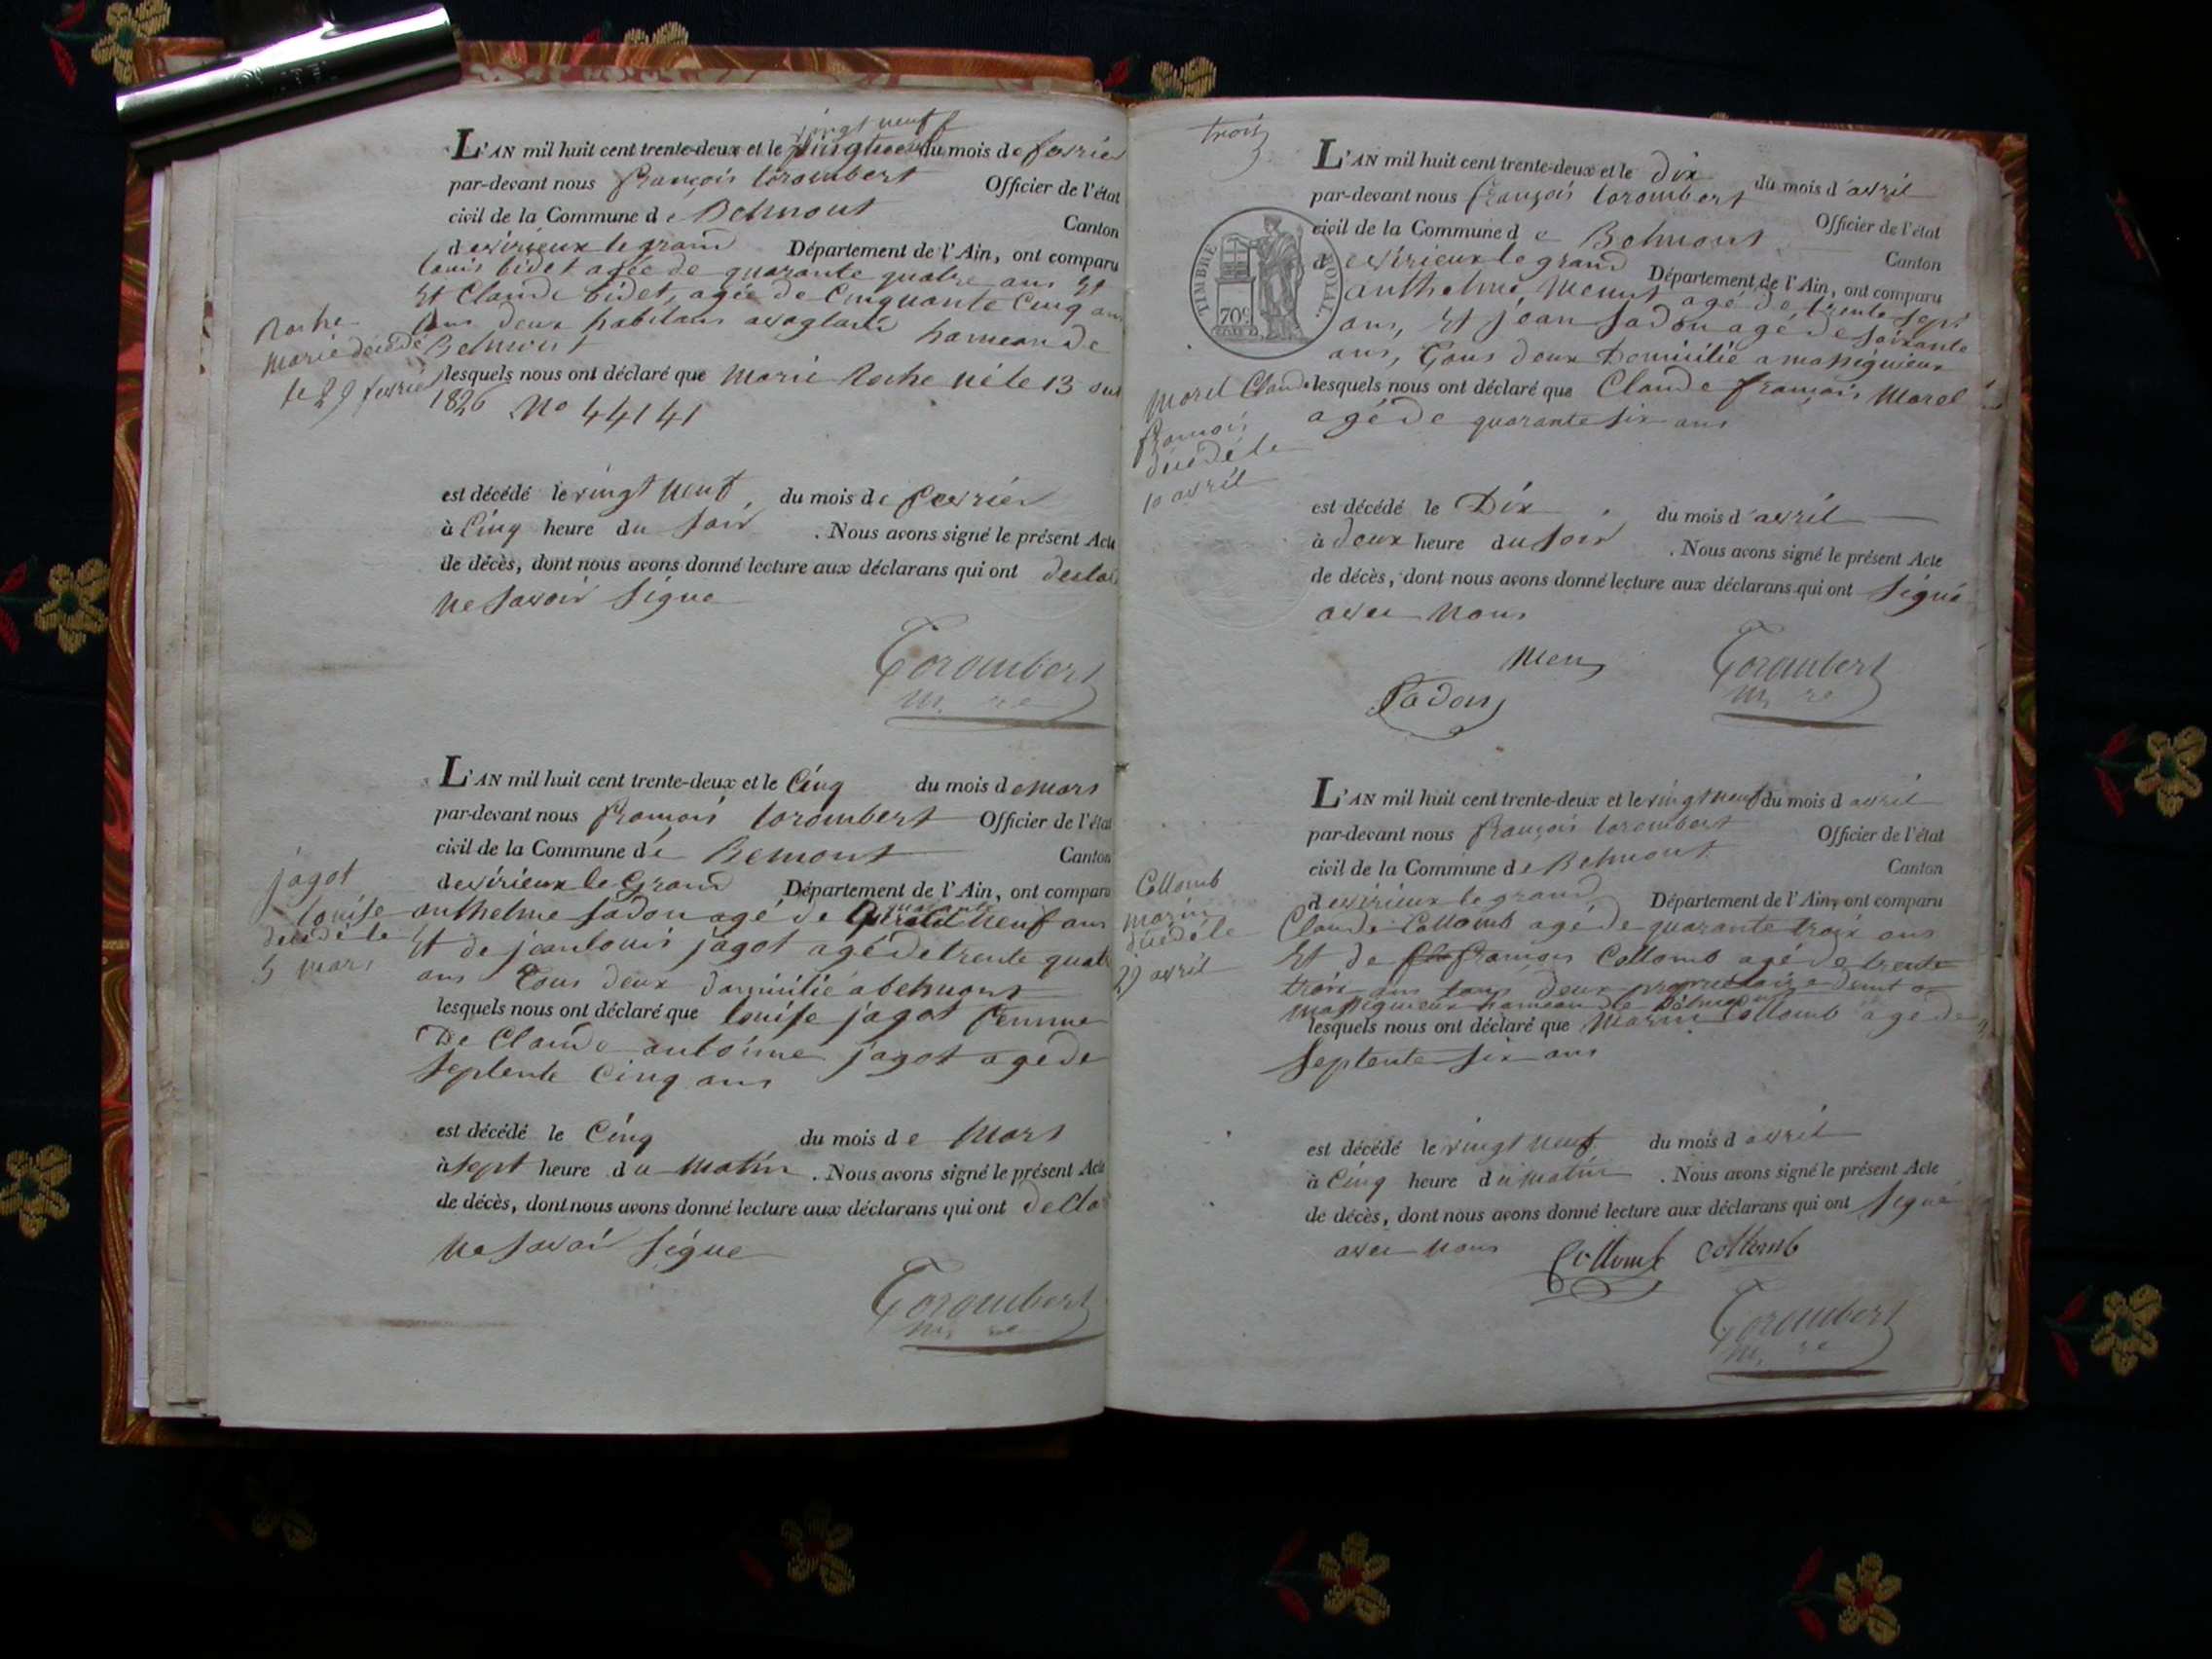 vingt neuf
L'AN mil huit cent trente-deux et le du mois de fevrier
par-devant nous françois torombert Officier de l'état
civil de la Commune de Belmont Canton
de virieux le grand Département de l'Ain, ont comparu
louis bidet agée de quarante quatre ans Et
Et Claude bidet, agée de Cinquante Cinq ans
tous deux habitans hameau de
Belmont
lesquels nous ont déclaré que Marie Roche né le 13
1826 No 44141
Roche
Marie décédé
le 29 fevrier
est décédé le vingt neuf du mois de fevrier
à Cinq heure du soir . Nous avons signé le présent Acte
de décès, dont nous avons donné lecture aux déclarans qui ont declar
ne savoir signe
Torombert
L'AN mil huit cent trente-deux et le Cinq du mois de mars
par-devant nous francois torombert Officier de l'état
civil de la Commune de Bemont Canton
de virieux le Grand Département de l'Ain, ont comparu
quarante
anthelme sadon agé de neuf ans
Et de jean louis jagot agé de trente quatr
ans Tous deux domicilié a belmont
lesquels nous ont déclaré que louise jagot femme
De Claude antoinne jagot agé de
septente Cinq ans
jagot
louise
décédé le
5 mars
est décédé le Cinq du mois de Mars
à sept heure du Matin . Nous avons signé le présent Acte
de décès, dont nous avons donné lecture aux déclarans qui ont decla
ne savoir signe
Torombert
trois
L'AN mil huit cent trente-deux et le dix du mois d'avril
par-devant nous françois torombert Officier de l'état
civil de la Commune de Belmont Canton
de virieux le grand Département de l'Ain, ont comparu
anthelme agé de trente sept
ans, Et jean sadon agé de soixante
ans, Tous deux Domicilié a massignieux
lesquels nous ont déclaré que Claude françois Morel
agé de quarante six ans
TIMBRE ROYAL.
70c
Morel Claude
francois
décédé le
10 avril
est décédé le Dix du mois d'avril
à deux heure du soir . Nous avons signé le présent Acte
de décès, dont nous avons donné lecture aux déclarans qui ont signé
avec nous
Torombert
Sadon
L'AN mil huit cent trente-deux et le vingt neuf du mois d avril
par-devant nous françois torombert Officier de l'état
civil de la Commune de Belmont Canton
de virieux le grand Département de l'Ain, ont comparu
Claude Collomb agé de quarante trois ans
Et de françois Collomb agé de trente
trois ans tous deux proprietaire
massignieux hameau de Belmont
lesquels nous ont déclaré que Marin Collomb agé de
septente six ans
Collomb
marin
décédé le
29 avril
est décédé le vingt neuf du mois d avril
à Cinq heure du matin . Nous avons signé le présent Acte
de décès, dont nous avons donné lecture aux déclarans qui ont signé
avec nous Collomb Collomb
Torombert